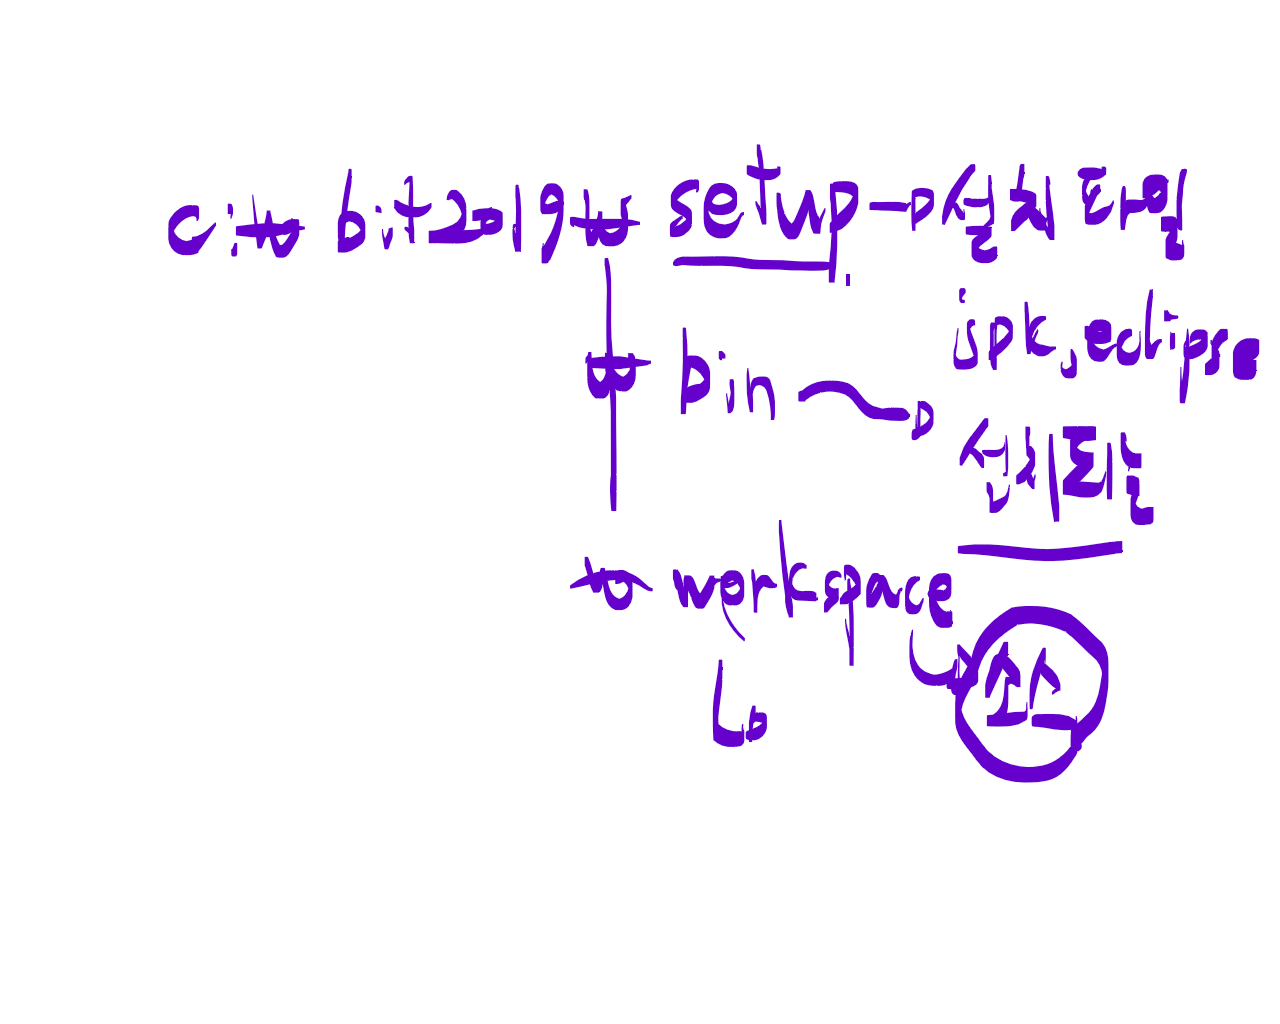 c:₩ bit2019₩ setup → 설치 파일
jDK, eclipse
₩ bin → 설치되는
₩ workspace → 소스